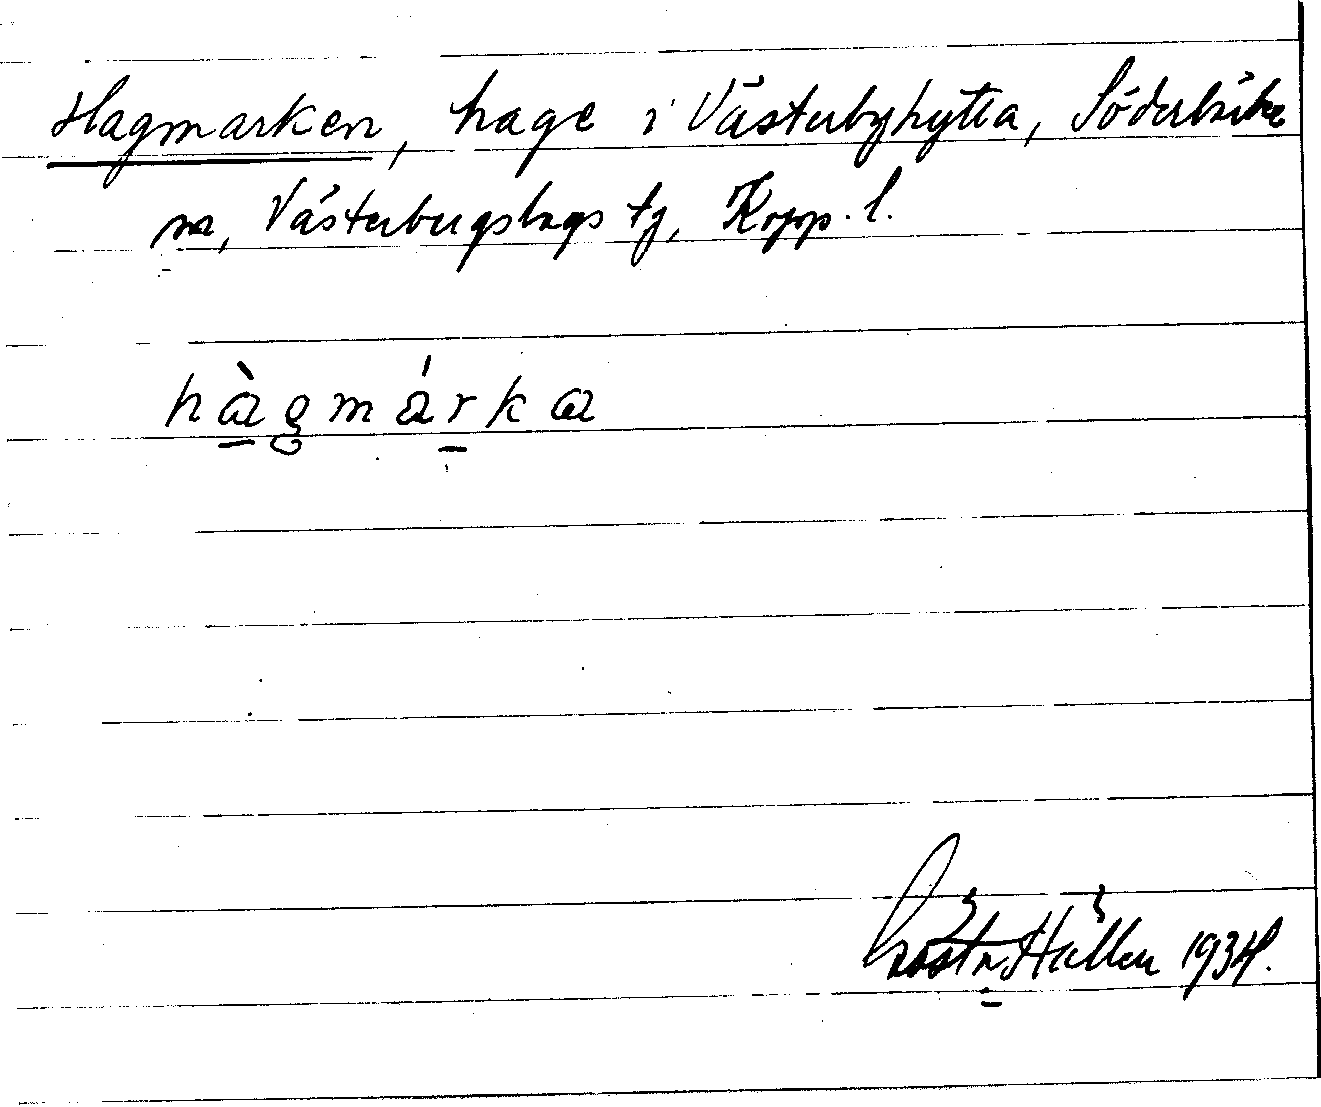 Hagmarken, hage i Västerbyhytta, Söderbärke
sn, Västerbergslags tg, Kopp. l.
hàgmárka
Gösta Hallén 1934.